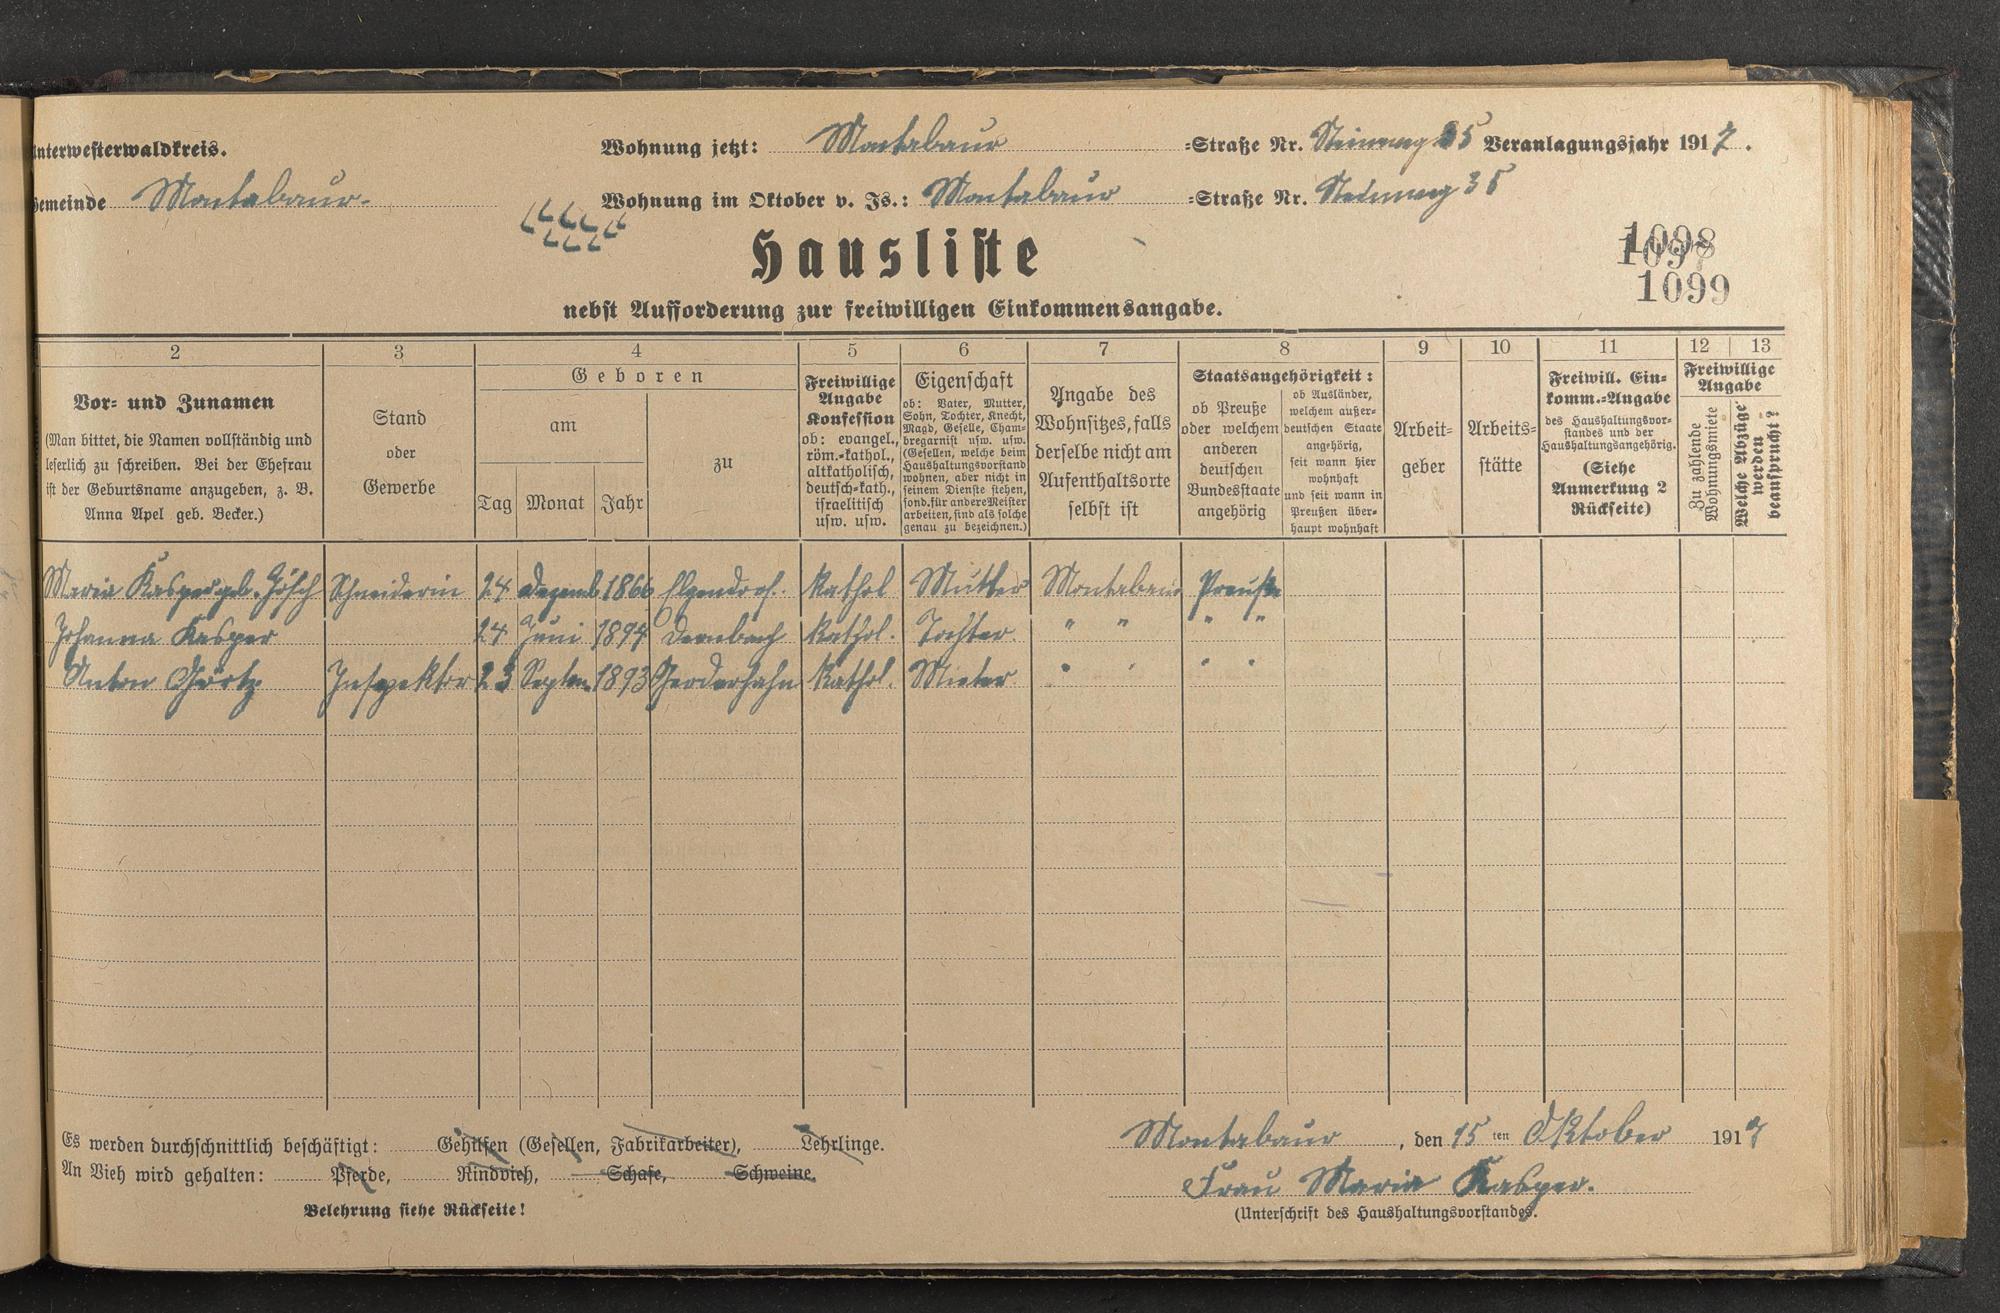 Unterwesterwaldkreis. Wohnung jetzt: Montabaur =Straße Nr. Steinweg 35 Veranlagungsjahr 1917.
Gemeinde Montabaur. Wohnung im Oktober v. Js.: Montabaur =Straße Nr. Steinweg 35
Hausliste
1098
1097
1099
nebst Aufforderung zur freiwilligen Einkommensangabe.
2 3 4 5 6 7 8 9 10 11 12 13
Vor- und Zunamen
(Man bittet, die Namen vollständig und
leserlich zu schreiben. Bei der Ehefrau
ist der Geburtsname anzugeben, z. B.
Anna Apel geb. Becker.)
Stand
oder
Gewerbe
Geboren
am
Tag Monat Jahr
zu
Freiwillige
Angabe
Konfession
ob: evangel.,
röm.-kathol.,
altkatholisch,
deutsch-kath.,
israelitisch
usw. usw.
Eigenschaft
ob: Vater, Mutter,
Sohn, Tochter, Knecht,
Magd, Geselle, Cham-
bregarnist usw. usw.
(Gesellen, welche beim
Haushaltungsvorstand
wohnen, aber nicht in
seinem Dienste stehen,
sond. für andere Meister
arbeiten, sind als solche
genau zu bezeichnen.)
Angabe des
Wohnsitzes, falls
derselbe nicht am
Aufenthaltsorte
selbst ist
Staatsangehörigkeit:
ob Preuße
oder welchem
anderen
deutschen
Bundesstaate
angehörig
ob Ausländer,
welchem außer-
deutschen Staate
angehörig,
seit wann hier
wohnhaft
und seit wann in
Preußen über-
haupt wohnhaft
Arbeit-
geber
Arbeits-
stätte
Freiwill. Ein-
komm.-Angabe
des Haushaltungsvor-
standes und der
Haushaltungsangehörig.
(Siehe
Anmerkung 2
Rückseite)
Freiwillige
Angabe
Zu zahlende
Wohnungsmiete
Welche Abzüge
werden
beansprucht?
Maria Kasper geb. Schneiderin 24 Dezemb 1866 Elgendorf. Kathol Mutter Montabaur Preuße
Johanna Kasper 24 Juni 1894 Dernbach Kathol. Tochter. " " " "
Anton Görtz Inspektor 23 Septem 1893 Kathol. Mieter " " " "
Es werden durchschnittlich beschäftigt: Gehilfen (Gesellen, Fabrikarbeiter), Lehrlinge.
An Vieh wird gehalten: Pferde, Rindvieh, Schafe, Schweine.
Belehrung siehe Rückseite!
Montabaur, den 15 ten Oktober 1917
Frau Maria Kasper.
(Unterschrift des Haushaltungsvorstandes.